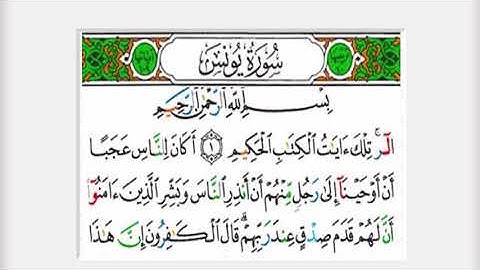 سُورَةُ يُونُسَ
بِسْمِ ٱللَّهِ ٱلرَّحْمَٰنِ ٱلرَّحِيمِ
الٓر ۚ تِلْكَ ءَايَٰتُ ٱلْكِتَٰبِ ٱلْحَكِيمِ ١ أَكَانَ لِلنَّاسِ عَجَبًا
أَنْ أَوْحَيْنَآ إِلَىٰ رَجُلٍ مِّنْهُمْ أَنْ أَنذِرِ ٱلنَّاسَ وَبَشِّرِ ٱلَّذِينَ ءَامَنُوٓا۟
أَنَّ لَهُمْ قَدَمَ صِدْقٍ عِندَ رَبِّهِمْ ۗ قَالَ ٱلْكَٰفِرُونَ إِنَّ هَٰذَا